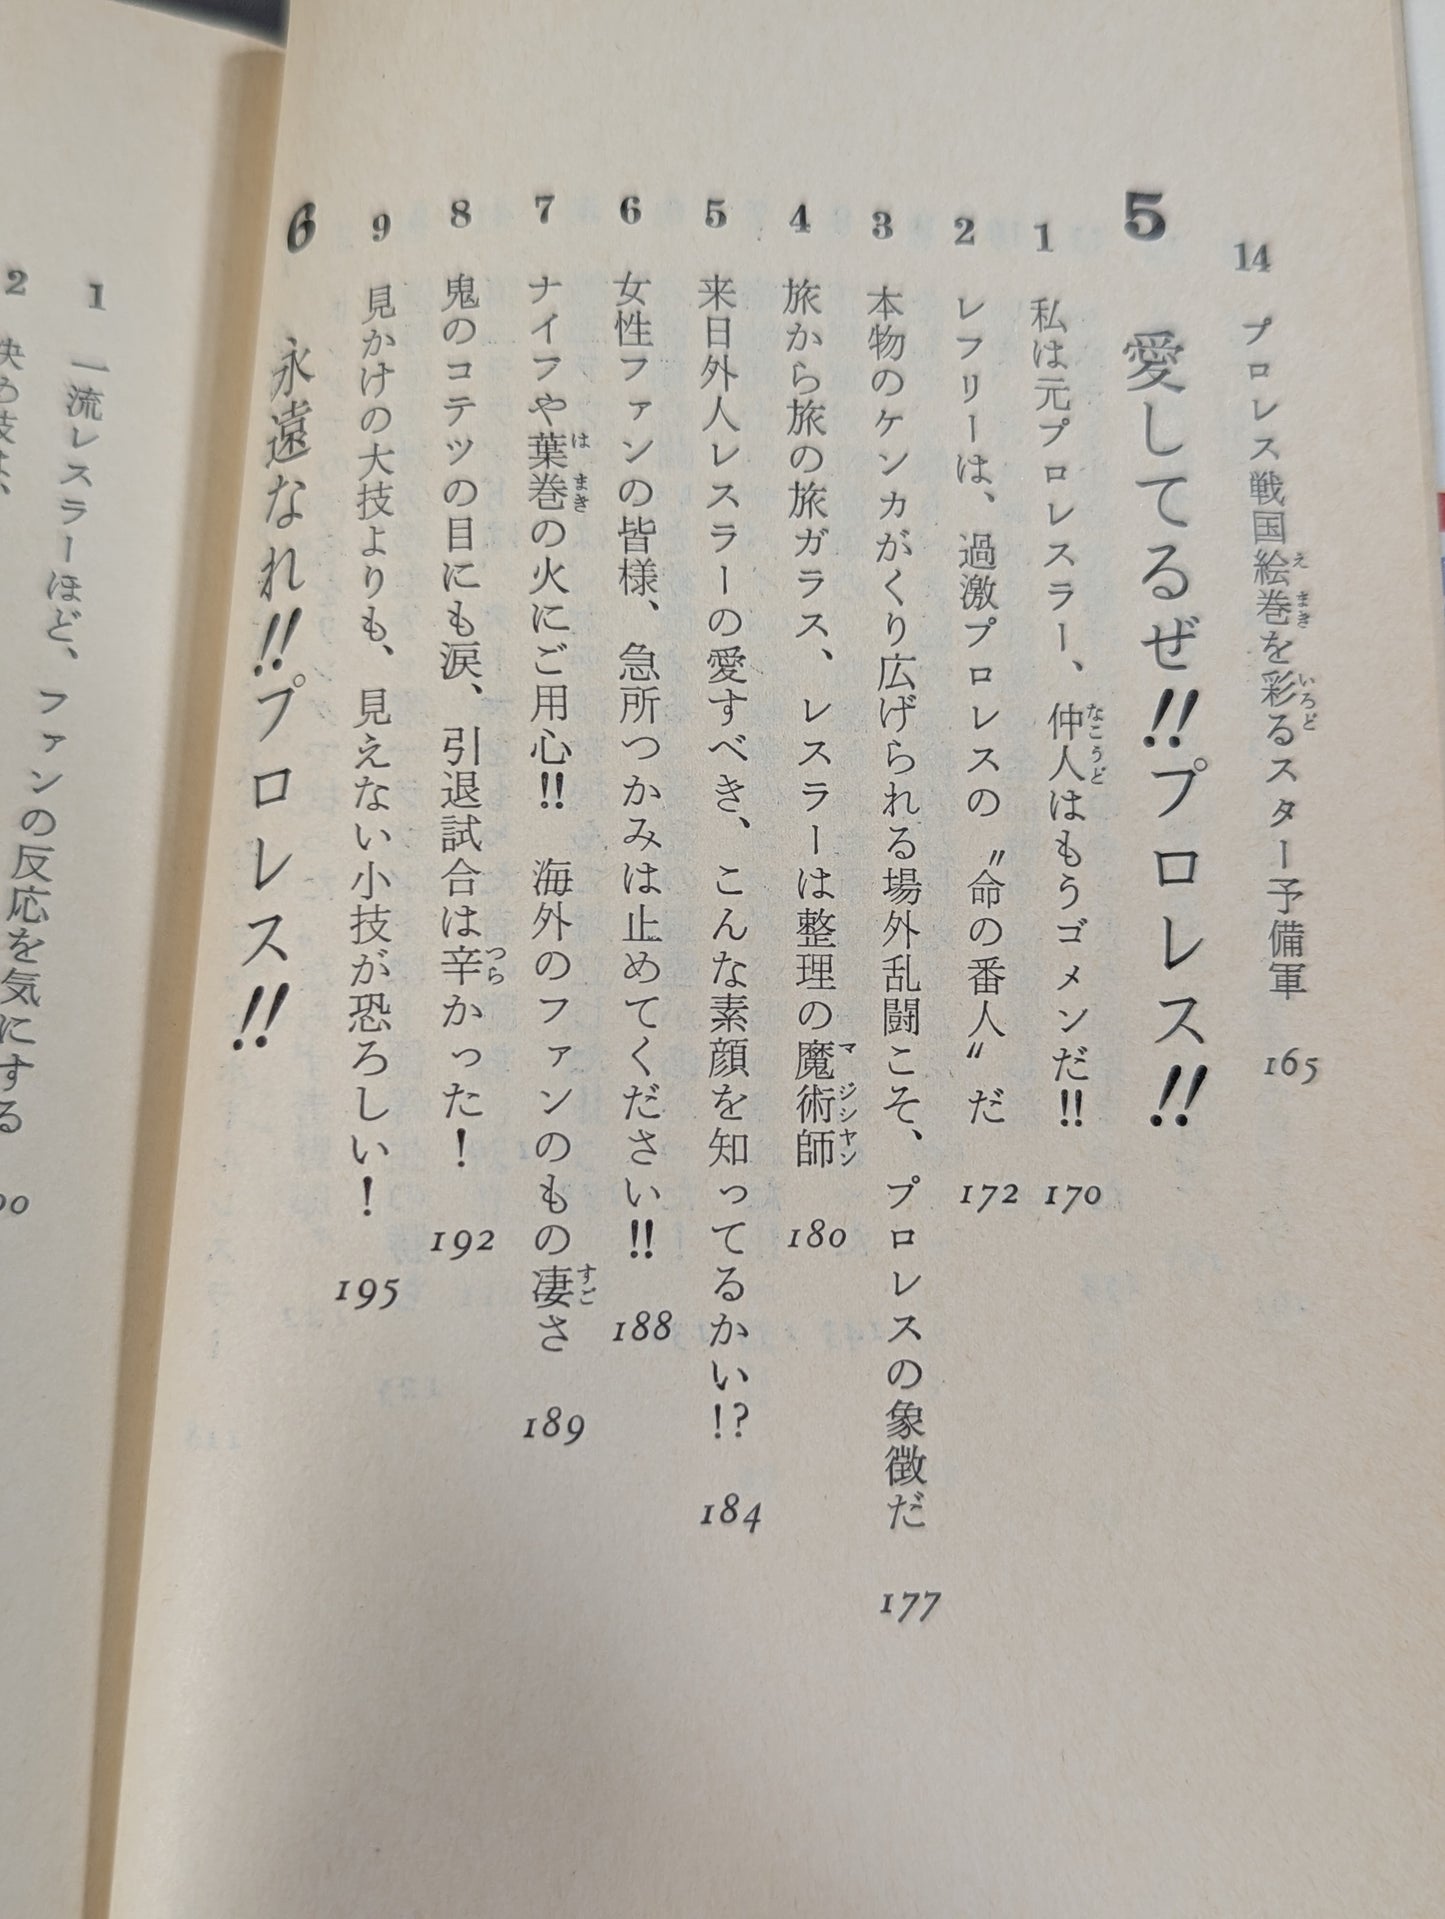 14 プロレス戦国絵巻を彩るスター予備軍 165
5 愛してるぜ!!プロレス!!
1 私は元プロレスラー、仲人はもうゴメンだ!! 170
2 レフリーは、過激プロレスの〝命の番人〟だ 172
3 本物のケンカがくり広げられる場外乱闘こそ、プロレスの象徴だ 177
4 旅から旅の旅ガラス、レスラーは整理の魔術師 180
5 来日外人レスラーの愛すべき、こんな素顔を知ってるかい!? 184
6 女性ファンの皆様、急所つかみは止めてください!! 188
7 ナイフや葉巻の火にご用心!! 海外のファンのもの凄さ 189
8 鬼のコテツの目にも涙、引退試合は辛かった! 192
9 見かけの大技よりも、見えない小技が恐ろしい! 195
6 永遠なれ!!プロレス!!
1 一流レスラーほど、ファンの反応を気にする
2